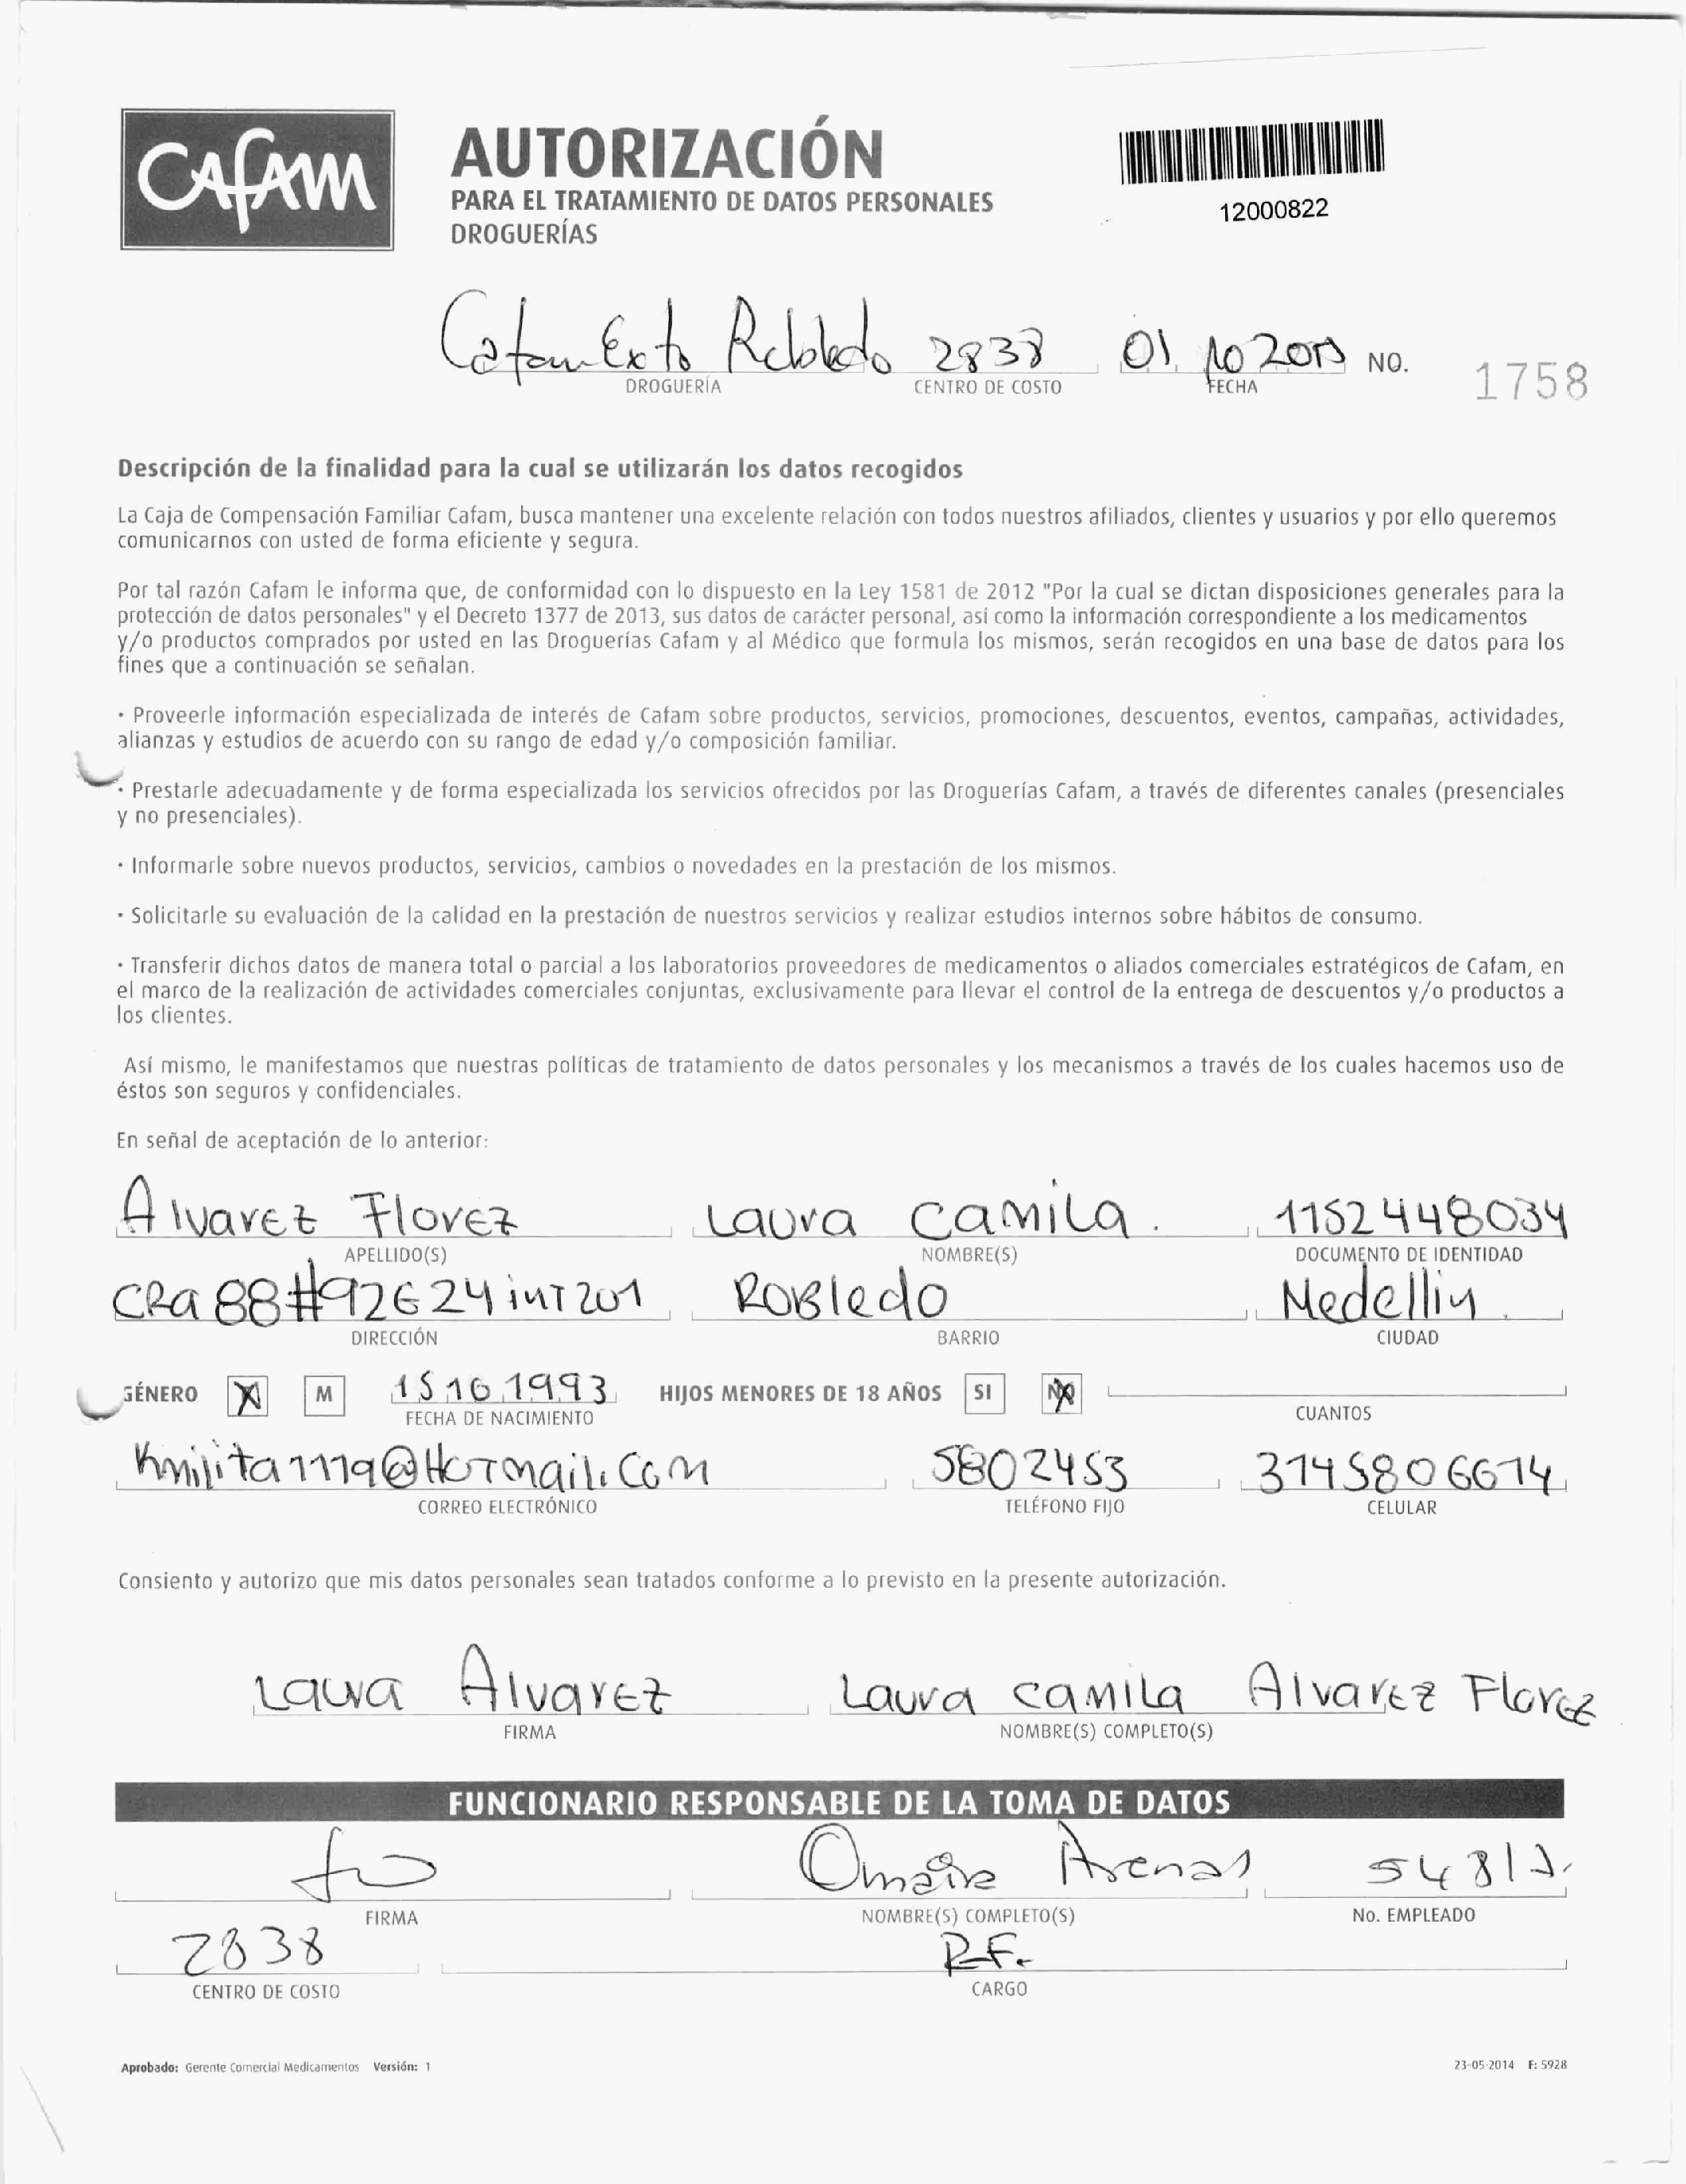 Cafam
AUTORIZACIÓN
PARA EL TRATAMIENTO DE DATOS PERSONALES
DROGUERÍAS
12000822
Cafam Exito Robledo 2838 01 10 NO. 1758
DROGUERÍA CENTRO DE COSTO FECHA
Descripción de la finalidad para la cual se utilizarán los datos recogidos
La Caja de Compensación Familiar Cafam, busca mantener una excelente relación con todos nuestros afiliados, clientes y usuarios y por ello queremos
comunicarnos con usted de forma eficiente y segura.
Por tal razón Cafam le informa que, de conformidad con lo dispuesto en la Ley 1581 de 2012 "Por la cual se dictan disposiciones generales para la
protección de datos personales" y el Decreto 1377 de 2013, sus datos de carácter personal, así como la información correspondiente a los medicamentos
y/o productos comprados por usted en las Droguerías Cafam y al Médico que formula los mismos, serán recogidos en una base de datos para los
fines que a continuación se señalan.
· Proveerle información especializada de interés de Cafam sobre productos, servicios, promociones, descuentos, eventos, campañas, actividades,
alianzas y estudios de acuerdo con su rango de edad y/o composición familiar.
· Prestarle adecuadamente y de forma especializada los servicios ofrecidos por las Droguerías Cafam, a través de diferentes canales (presenciales
y no presenciales).
· Informarle sobre nuevos productos, servicios, cambios o novedades en la prestación de los mismos.
· Solicitarle su evaluación de la calidad en la prestación de nuestros servicios y realizar estudios internos sobre hábitos de consumo.
· Transferir dichos datos de manera total o parcial a los laboratorios proveedores de medicamentos o aliados comerciales estratégicos de Cafam, en
el marco de la realización de actividades comerciales conjuntas, exclusivamente para llevar el control de la entrega de descuentos y/o productos a
los clientes.
Así mismo, le manifestamos que nuestras políticas de tratamiento de datos personales y los mecanismos a través de los cuales hacemos uso de
éstos son seguros y confidenciales.
En señal de aceptación de lo anterior:
Alvarez Florez Laura Camila. 1152448034
APELLIDO(S) NOMBRE(S) DOCUMENTO DE IDENTIDAD
CRa 88#92E24 inT 201 Robledo Medellin.
DIRECCIÓN BARRIO CIUDAD
GÉNERO X M 15 10 1993 HIJOS MENORES DE 18 AÑOS SI NO
FECHA DE NACIMIENTO CUANTOS
Kmilita1119@Hotmail.com 5802453 3145806614
CORREO ELECTRÓNICO TELÉFONO FIJO CELULAR
Consiento y autorizo que mis datos personales sean tratados conforme a lo previsto en la presente autorización.
Laura Alvarez Laura Camila Alvarez Florez
FIRMA NOMBRE(S) COMPLETO(S)
FUNCIONARIO RESPONSABLE DE LA TOMA DE DATOS
Omaira Arenas
FIRMA NOMBRE(S) COMPLETO(S) No. EMPLEADO
2838 R.F.
CENTRO DE COSTO CARGO
Aprobado: Gerente Comercial Medicamentos Versión: 1 23-05-2014 F: 5928